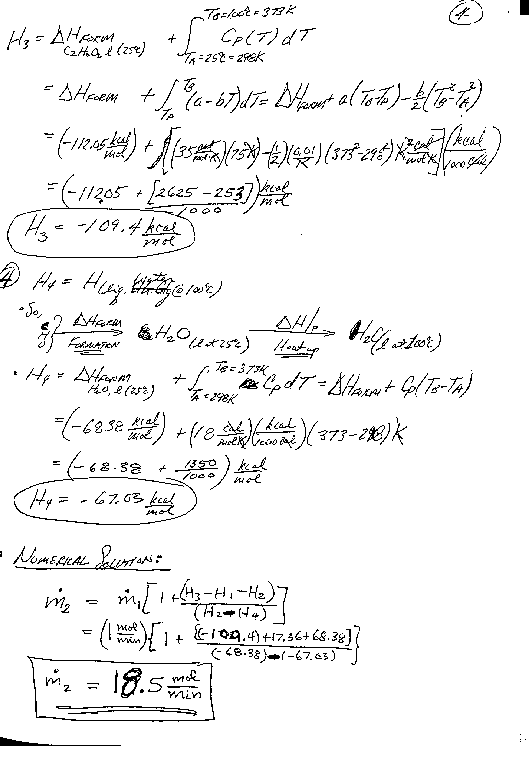 4
H₃ = ΔH_FORM C₂H₆O₂, l (25°C) + ∫_{T_A=25°C=298K}^{T_B=100°C=373K} C_P(T) dT
= ΔH_FORM + ∫ (a-bT)dT = ΔH_FORM + a(T_B-T_A) - b/2 (T_B² - T_A²)
= (-112.05 kcal/mol) + [(35 cal/mol K)(75 K) - (1/2)(0.01/K)(373² - 298²) K² cal/mol K] (kcal/1000 cal)
= (-112.05 + [2625 - 253]/1000) kcal/mol
H₃ = -109.4 kcal/mol
④ H₄ = H(liq. water @ 100°C)
• So,
ΔH_FORM FORMATION → H₂O (l at 25°C) ΔH_P Heat up → H₂O (l at 100°C)
• H₄ = ΔH_FORM H₂O, l (25°C) + ∫_{T_A=298K}^{T_B=373K} C_P dT = ΔH_FORM + C_P(T_B-T_A)
= (-68.38 kcal/mol) + (18 cal/mol K)(kcal/1000 cal)(373-298)K
= (-68.38 + 1350/1000) kcal/mol
H₄ = -67.03 kcal/mol
• NUMERICAL SOLUTION:
ṁ₂ = ṁ₁ [1 + (H₃-H₁-H₂)/(H₂-H₄)]
= (1 mol/min) [1 + {(-109.4)+17.36+68.38}/(-68.38)-(-67.03)]
ṁ₂ = 18.5 mol/min